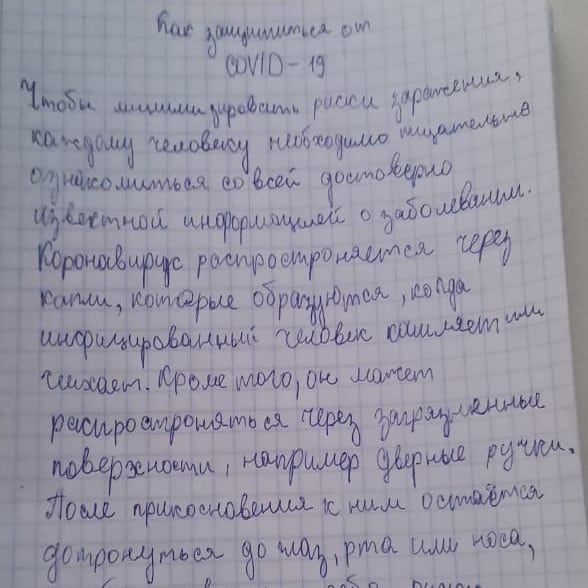 Как защититься от
COVID-19
Чтобы минимизировать риски заражения,
каждому человеку необходимо тщательно
ознакомиться со всей достоверно
известной информацией о заболевании.
Коронавирус распростроняется через
капли, которые образуются, когда
инфицированный человек кашляет или
чихает. Кроме того, он может
распростроняться через загрязненные
поверхности, например дверные ручки.
После прикосновения к ним остаётся
дотронуться до глаз, рта или носа,